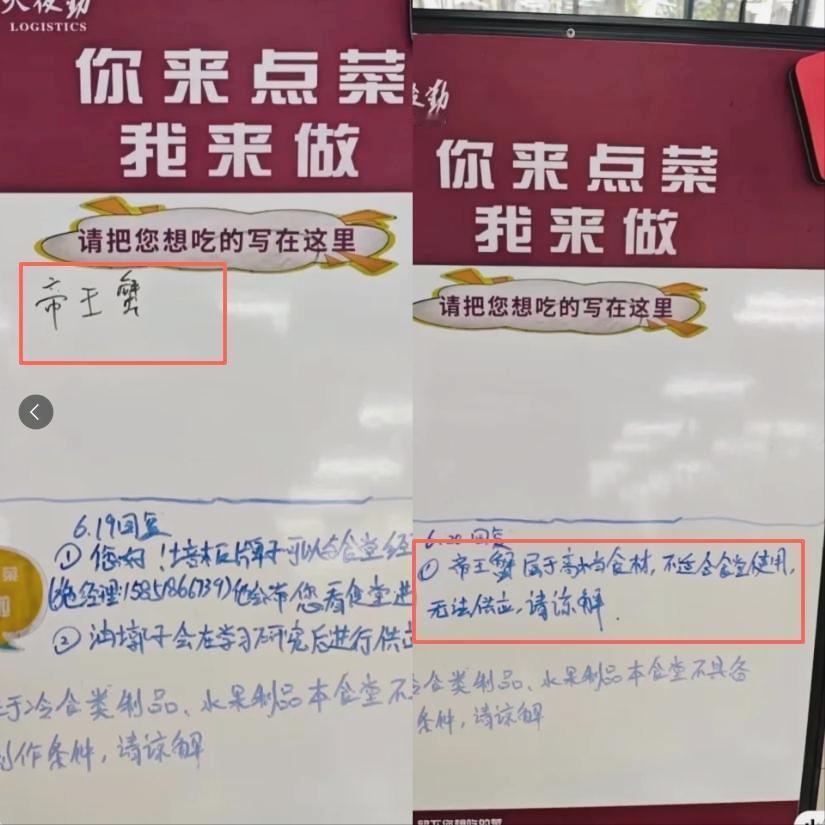 LOGISTICS
你来点菜
我来做
请把您想吃的写在这里
帝王蟹
6.19回复
①您好！
可以与食堂经
看食堂进
②油墩子会在学习研究后进行供应
于冷食类制品、水果制品本食堂不
制作条件，请谅解
菜
勤
你来点菜
我来做
请把您想吃的写在这里
6.20回复
①帝王蟹属于高档食材，不适合食堂使用，
无法供应，请谅解.
冷食类制品、水果制品本食堂不具备
条件，请谅解
留下您想吃的菜